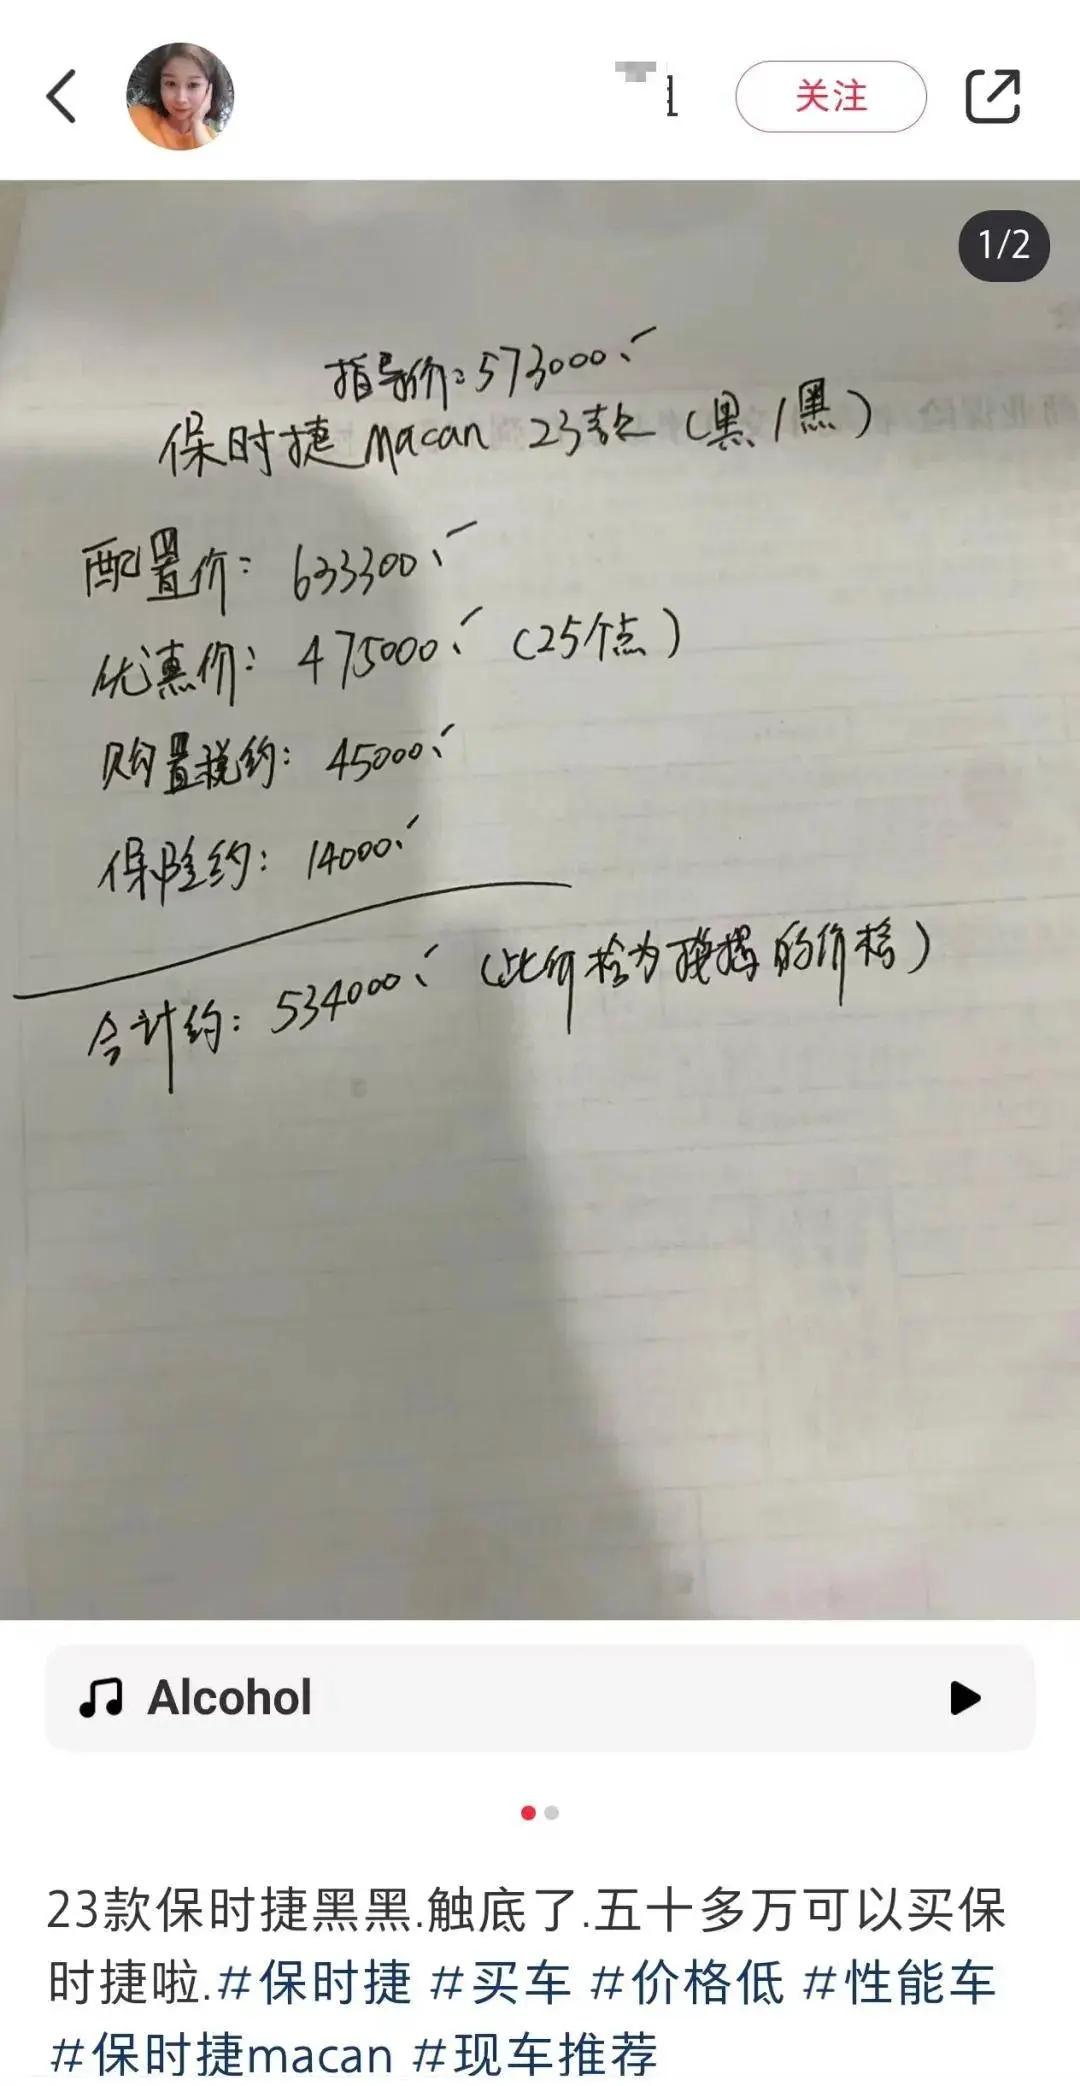 关注
1/2
指导价:573000、
保时捷macan 23款(黑/黑)
配置价:633300、
优惠价:475000、(25个点)
购置税约:45000、
保险约:14000、
合计约:534000、(此价格为 的价格)
Alcohol
23款保时捷黑黑.触底了.五十多万可以买保
时捷啦.#保时捷 #买车 #价格低 #性能车
#保时捷macan #现车推荐